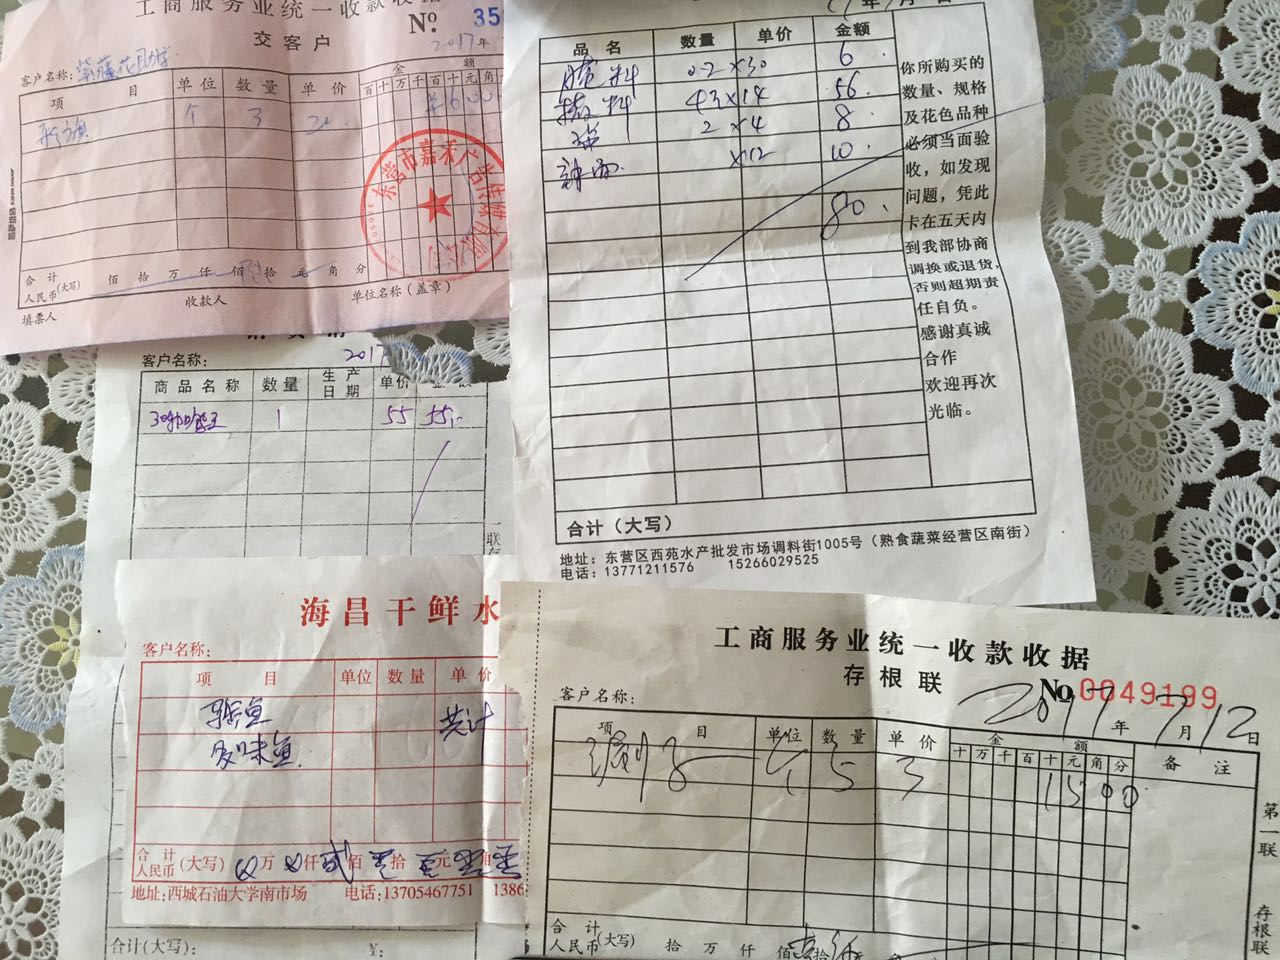 工商服务业统一收款收据
交客户
No. 35
2017年
客户名称:紫藤花园
项 目 单位 数量 单价 金 额
百十万千百十元角分
个 3
东营市嘉禾广告传媒有限
合计
人民币(大写) 佰 拾 万 仟 佰 拾 元 角 分
填票人 收款人 单位名称(盖章)
品名 数量 单价 金额
0.2×30 6
43×14 56
2×4 8
×12 10
80
你所购买的
数量、规格
及花色品种
必须当面验
收,如发现
问题,凭此
卡在五天内
到我部协商
调换或退货,
否则超期责
任自负。
感谢真诚
合作
欢迎再次
光临。
合计(大写)
地址:东营区西苑水产批发市场调料街1005号(熟食蔬菜经营区南街)
电话:13771211576 15266029525
客户名称: 2017
商品名称 数量 生产日期 单价
1 55 55.
合计(大写): ¥:
海昌干鲜水
客户名称:
项 目 单位 数量 单价
共计
多味鱼
合计
人民币(大写) 万 仟 贰 佰 拾 元 角
地址:西城石油大学南市场 电话:13705467751 1386
工商服务业统一收款收据
存根联
No 0049199
客户名称: 2017年7月12日
项 目 单位 数量 单价 金 额 备 注
十万千百十元角分
个 5 3 1500
合计
人民币(大写) 拾 万 仟 佰 拾
第一联
存根联